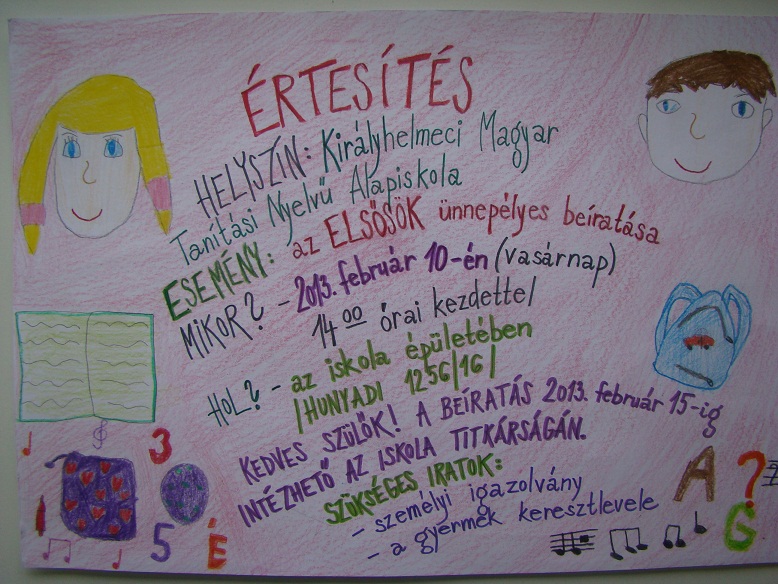 ÉRTESÍTÉS
HELYSZÍN: Királyhelmeci Magyar
Tanítási Nyelvű Alapiskola
ESEMÉNY: az ELSŐSÖK ünnepélyes beíratása
MIKOR? - 2013. február 10-én (vasárnap)
14 00 órai kezdettel
HOL? - az iskola épületében
/HUNYADI 1256/16/
KEDVES SZÜLŐK! A BEÍRATÁS 2013. február 15-ig
INTÉZHETŐ AZ ISKOLA TITKÁRSÁGÁN.
SZÜKSÉGES IRATOK:
- személyi igazolvány
- a gyermek keresztlevele
3
5
É
A
?
G